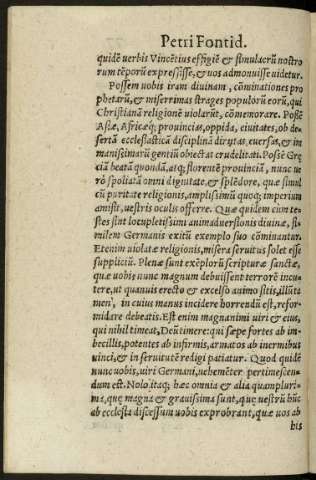 Petri Fontid.
quidē uerbis Vincētius effigiē & simulacrū nostro
rum tēporū expressisse, & uos admonuisse uidetur.
Possem uobis iram diuinam, cōminationes pro
phetarū, & miserrimas strages populorū eorū, qui
Christianā religionē violarūt, cōmemorare. Possē
Asiæ, Africæq; prouincias, oppida, ciuitates, ob de-
sertā ecclesiasticā disciplinā dirutas, euersas, & im
manissimarū gentiū obiectas crudelitati. Possē Gre
ciā beatā quondā, atq; florentē prouinciā, nunc ue
rò spoliatā omni dignitate, & splēdore, quæ simul
cū puritate religionis, amplissimū quoq; imperium
amisit, uestris oculis offerre. Quæ quidem cùm te-
stes sint locupletissimi animaduersionis diuinæ, si-
milem Germanis exitū exemplo suo cōminantur.
Etenim uiolatæ religionis, misera seruitus solet esse
suppliciū. Plenæ sunt exēplorū scripturæ sanctæ,
quæ uobis nunc magnum debuissent terrorē incu-
tere, ut quanuis erecto & excelso animo sitis, illū ta
men, in cuius manus incidere horrendū est, refor-
midare debeatis. Est enim magnanimi uiri & eius,
qui nihil timeat, Deū timere: qui sæpe fortes ab im-
becillis, potentes ab infirmis, armatos ab inermibus
vinci, & in seruitutē redigi patiatur. Quod quidē
nunc uobis, uiri Germani, uehemēter pertimescen-
dum est. Nolo itaq; hæc omnia & alia quampluri-
ma, quę magna & grauissima sunt, quę uestrū hūc
ab ecclesia discessum uobis exprobrant, quæ uos ab
his